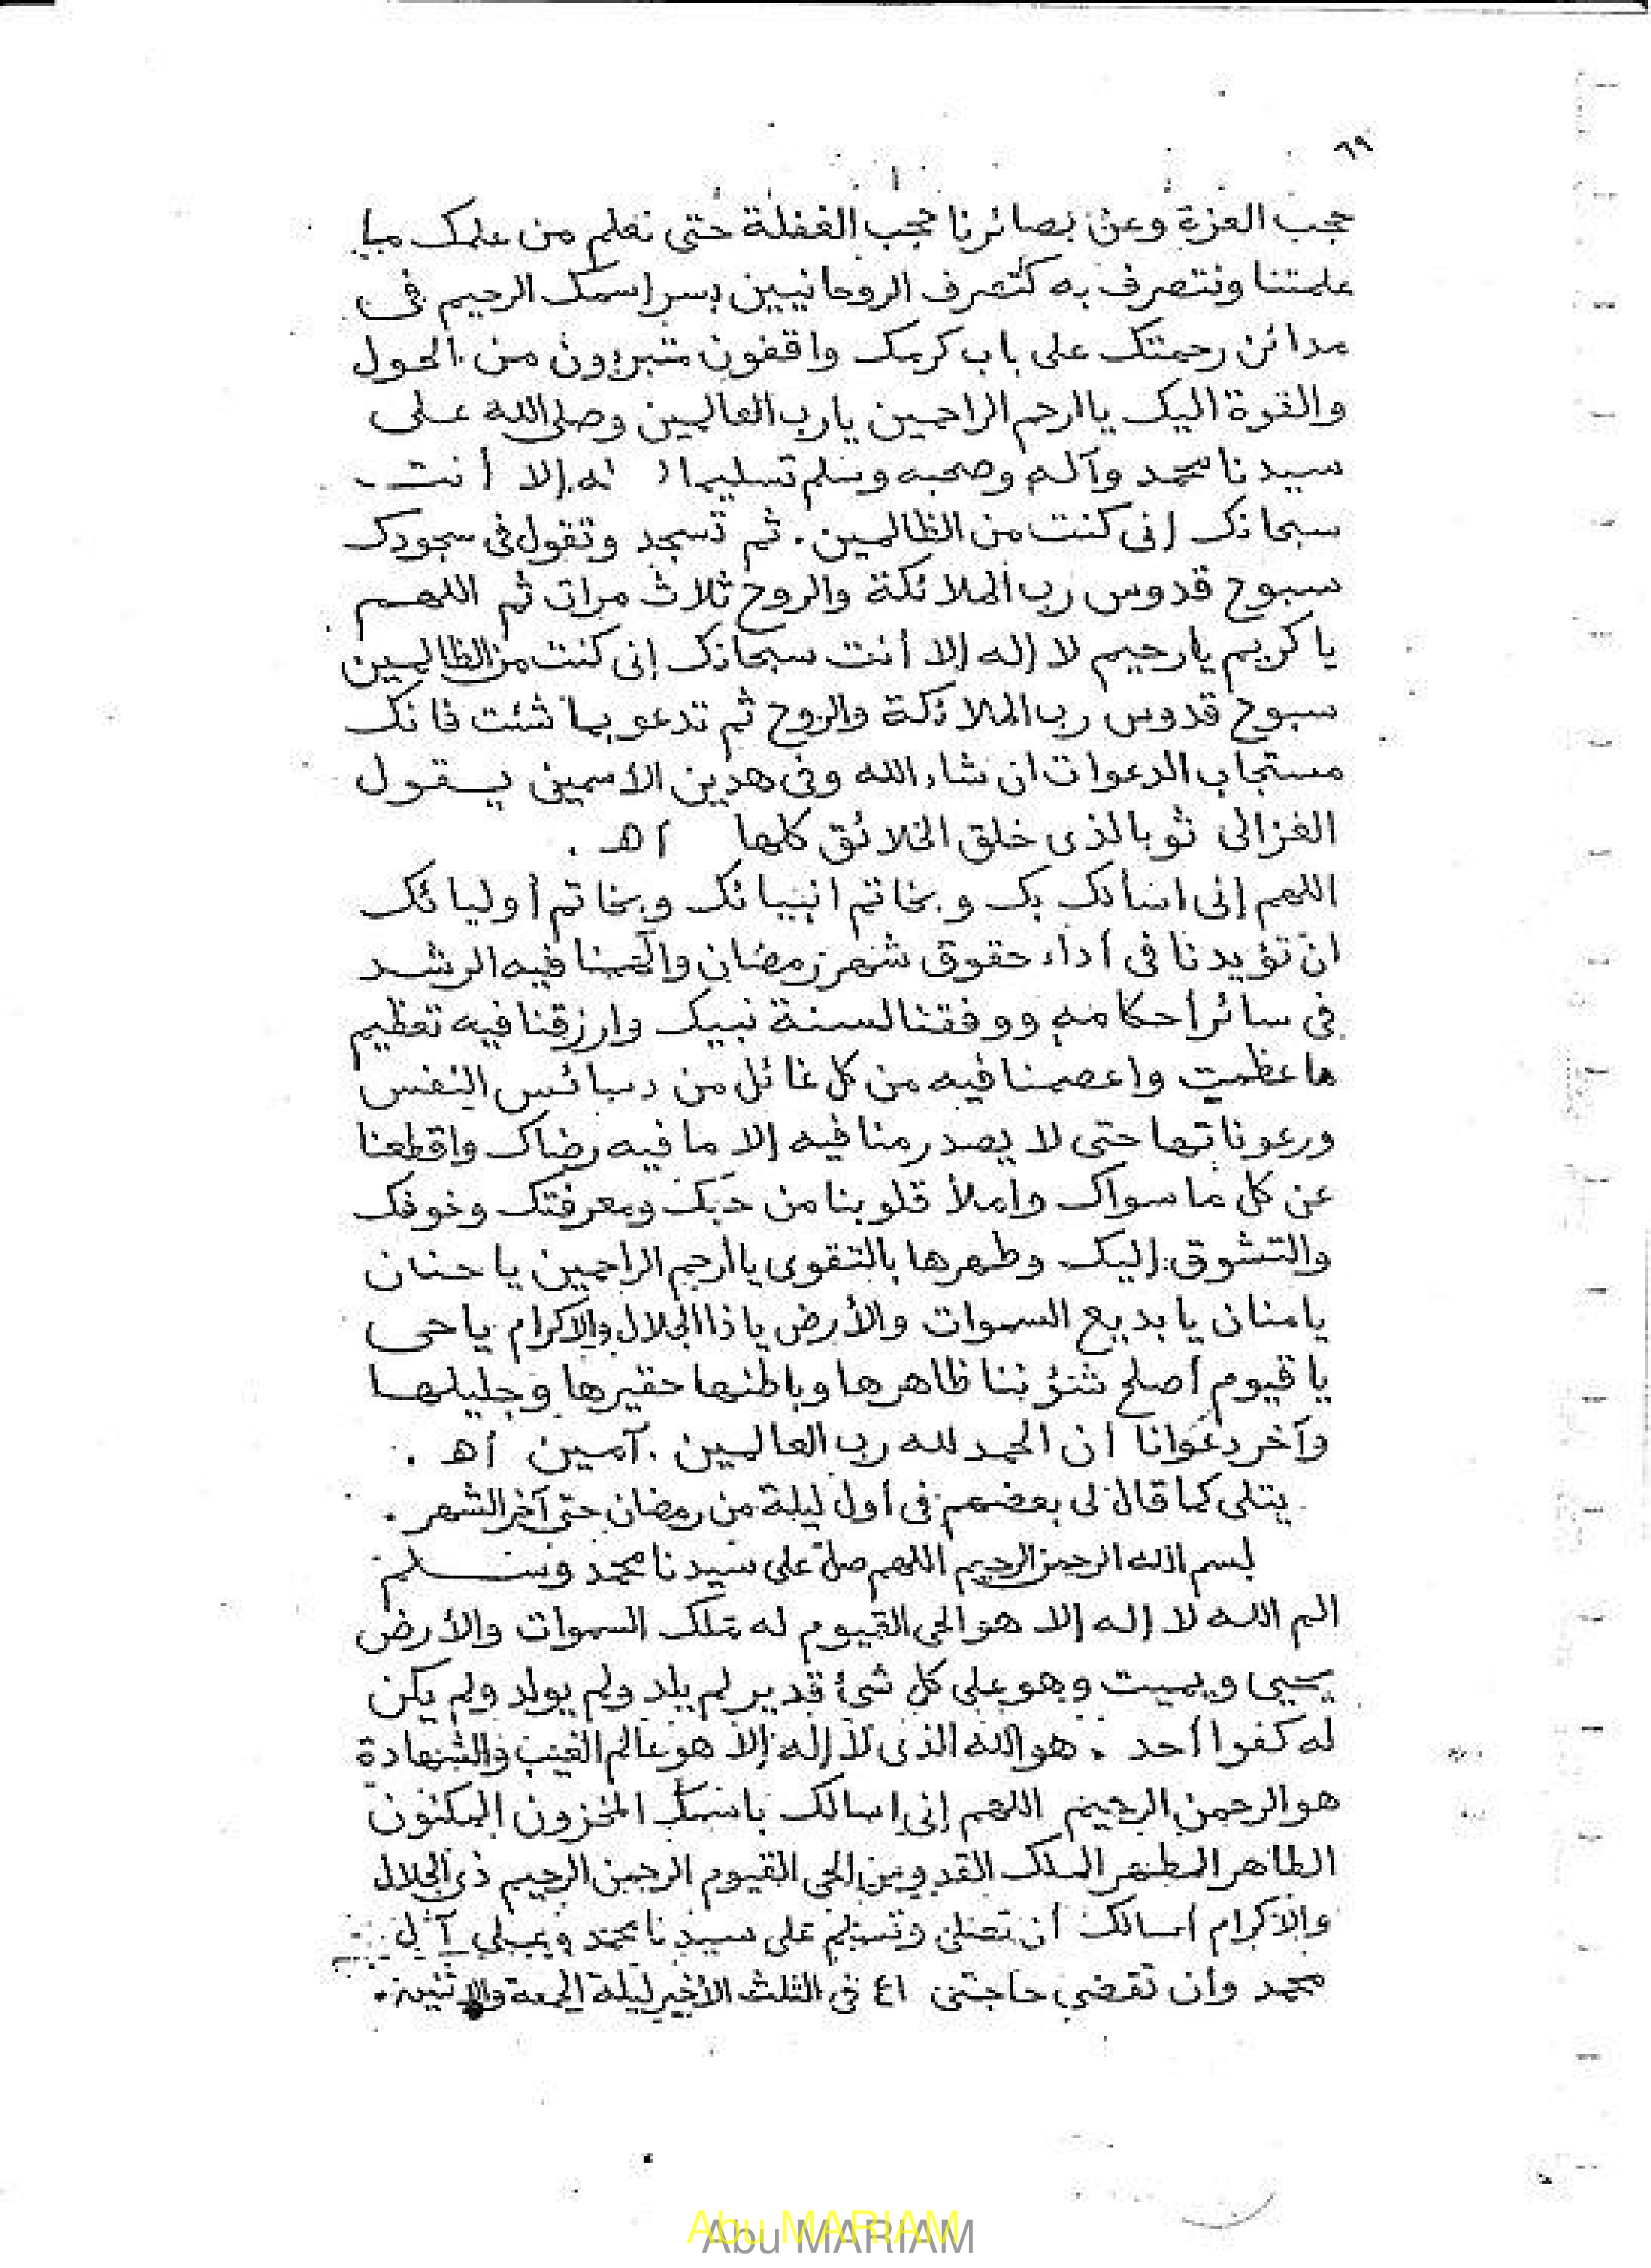 ٦٩
حجب العزة وعن بصائرنا حجب الغفلة حتى نعلم من علمك ما
علمتنا ونتصرف به كتصرف الروحانيين بسر اسمك الرحيم فى
مدائن رحمتك على باب كرمك واقفون متبرءون من الحول
والقوة اليك يا ارحم الراحمين يا رب العالمين وصلى الله على
سيدنا محمد وآله وصحبه وسلم تسليما إله إلا أنت
سبحانك إنى كنت من الظالمين . ثم تسجد وتقول فى سجودك
سبوح قدوس رب الملائكة والروح ثلاث مرات ثم اللهم
يا كريم يا رحيم لا إله إلا أنت سبحانك إنى كنت من الظالمين
سبوح قدوس رب الملائكة والروح ثم تدعو بما شئت فانك
مستجاب الدعوات ان شاء الله وفى هدين الاسمين يقول
الغزالى ثو بالذى خلق الخلائق كلها أهـ .
اللهم إنى اسألك بك و بخاتم انبيائك وبخاتم أوليائك
ان تؤيدنا فى أداء حقوق شهر رمضان والهمنا فيه الرشد
فى سائر أحكامه ووفقنا لسنة نبيك وارزقنا فيه تعظيم
ما عظمت واعصمنا فيه من كل غائل من دسائس النفس
ورعوناتها حتى لا يصدر منا فيه إلا ما فيه رضاك واقطعنا
عن كل ما سواك واملأ قلوبنا من حبك ومعرفتك وخوفك
والتشوق إليك وطهرها بالتقوى يا أرحم الراحمين يا حنان
يا منان يا بديع السموات والأرض يا ذا الجلال والاكرام يا حى
يا قيوم أصلح شئؤننا ظاهرها وباطنها حقيرها وجليلها
وآخر دعوانا ان الحمد لله رب العالمين . آمين أهـ .
يتلى كما قال لى بعضهم فى اول ليلة من رمضان حتى آخر الشهر .
بسم الله الرحمن الرحيم اللهم صل على سيدنا محمد وسلم
الم الله لا إله إلا هو الحى القيوم له ملك السموات والأرض
يحيى ويميت وهو على كل شئ قدير لم يلد ولم يولد ولم يكن
له كفوا أحد . هو الله الذى لا إله إلا هو عالم الغيب والشهادة
هو الرحمن الرحيم اللهم إنى اسالك باسمك المخزون المكنون
الطاهر المطهر الملك القدوس الحى القيوم الرحمن الرحيم ذى الجلال
والاكرام أسالك أن تصلى وتسلم على سيدنا محمد وعلى آل
محمد وان تقضى حاجتى ٤١ فى الثلث الأخير ليلة الجمعة والاثنين .
Abu MARIAM